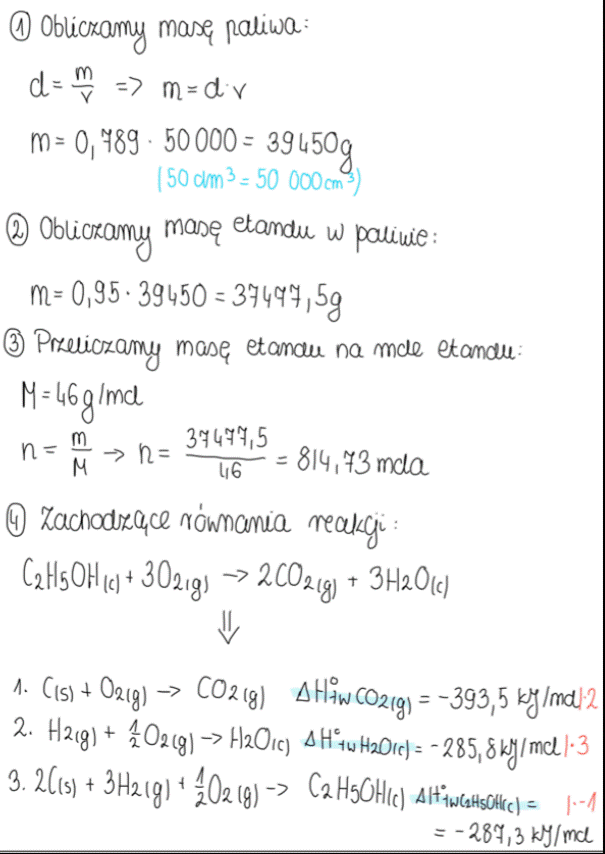 ① Obliczamy masę paliwa:
d = m/v => m = d·v
m = 0,789 · 50 000 = 39450g
(50 dm³ = 50 000 cm³)
② Obliczamy masę etanolu w paliwie:
m = 0,95 · 39450 = 37477,5g
③ Przeliczamy masę etanolu na mole etanolu:
M = 46 g/mol
n = m/M → n = 37477,5/46 = 814,73 mola
④ Zachodzące równania reakcji:
C₂H₅OH(c) + 3O₂(g) → 2CO₂(g) + 3H₂O(c)
⇓
1. C(s) + O₂(g) → CO₂(g) ΔH°tw CO₂(g) = -393,5 kJ/mol |·2
2. H₂(g) + ½O₂(g) → H₂O(c) ΔH°tw H₂O(c) = -285,8 kJ/mol |·3
3. 2C(s) + 3H₂(g) + ½O₂(g) → C₂H₅OH(c) ΔH°tw C₂H₅OH(c) = |·-1
= -287,3 kJ/mol